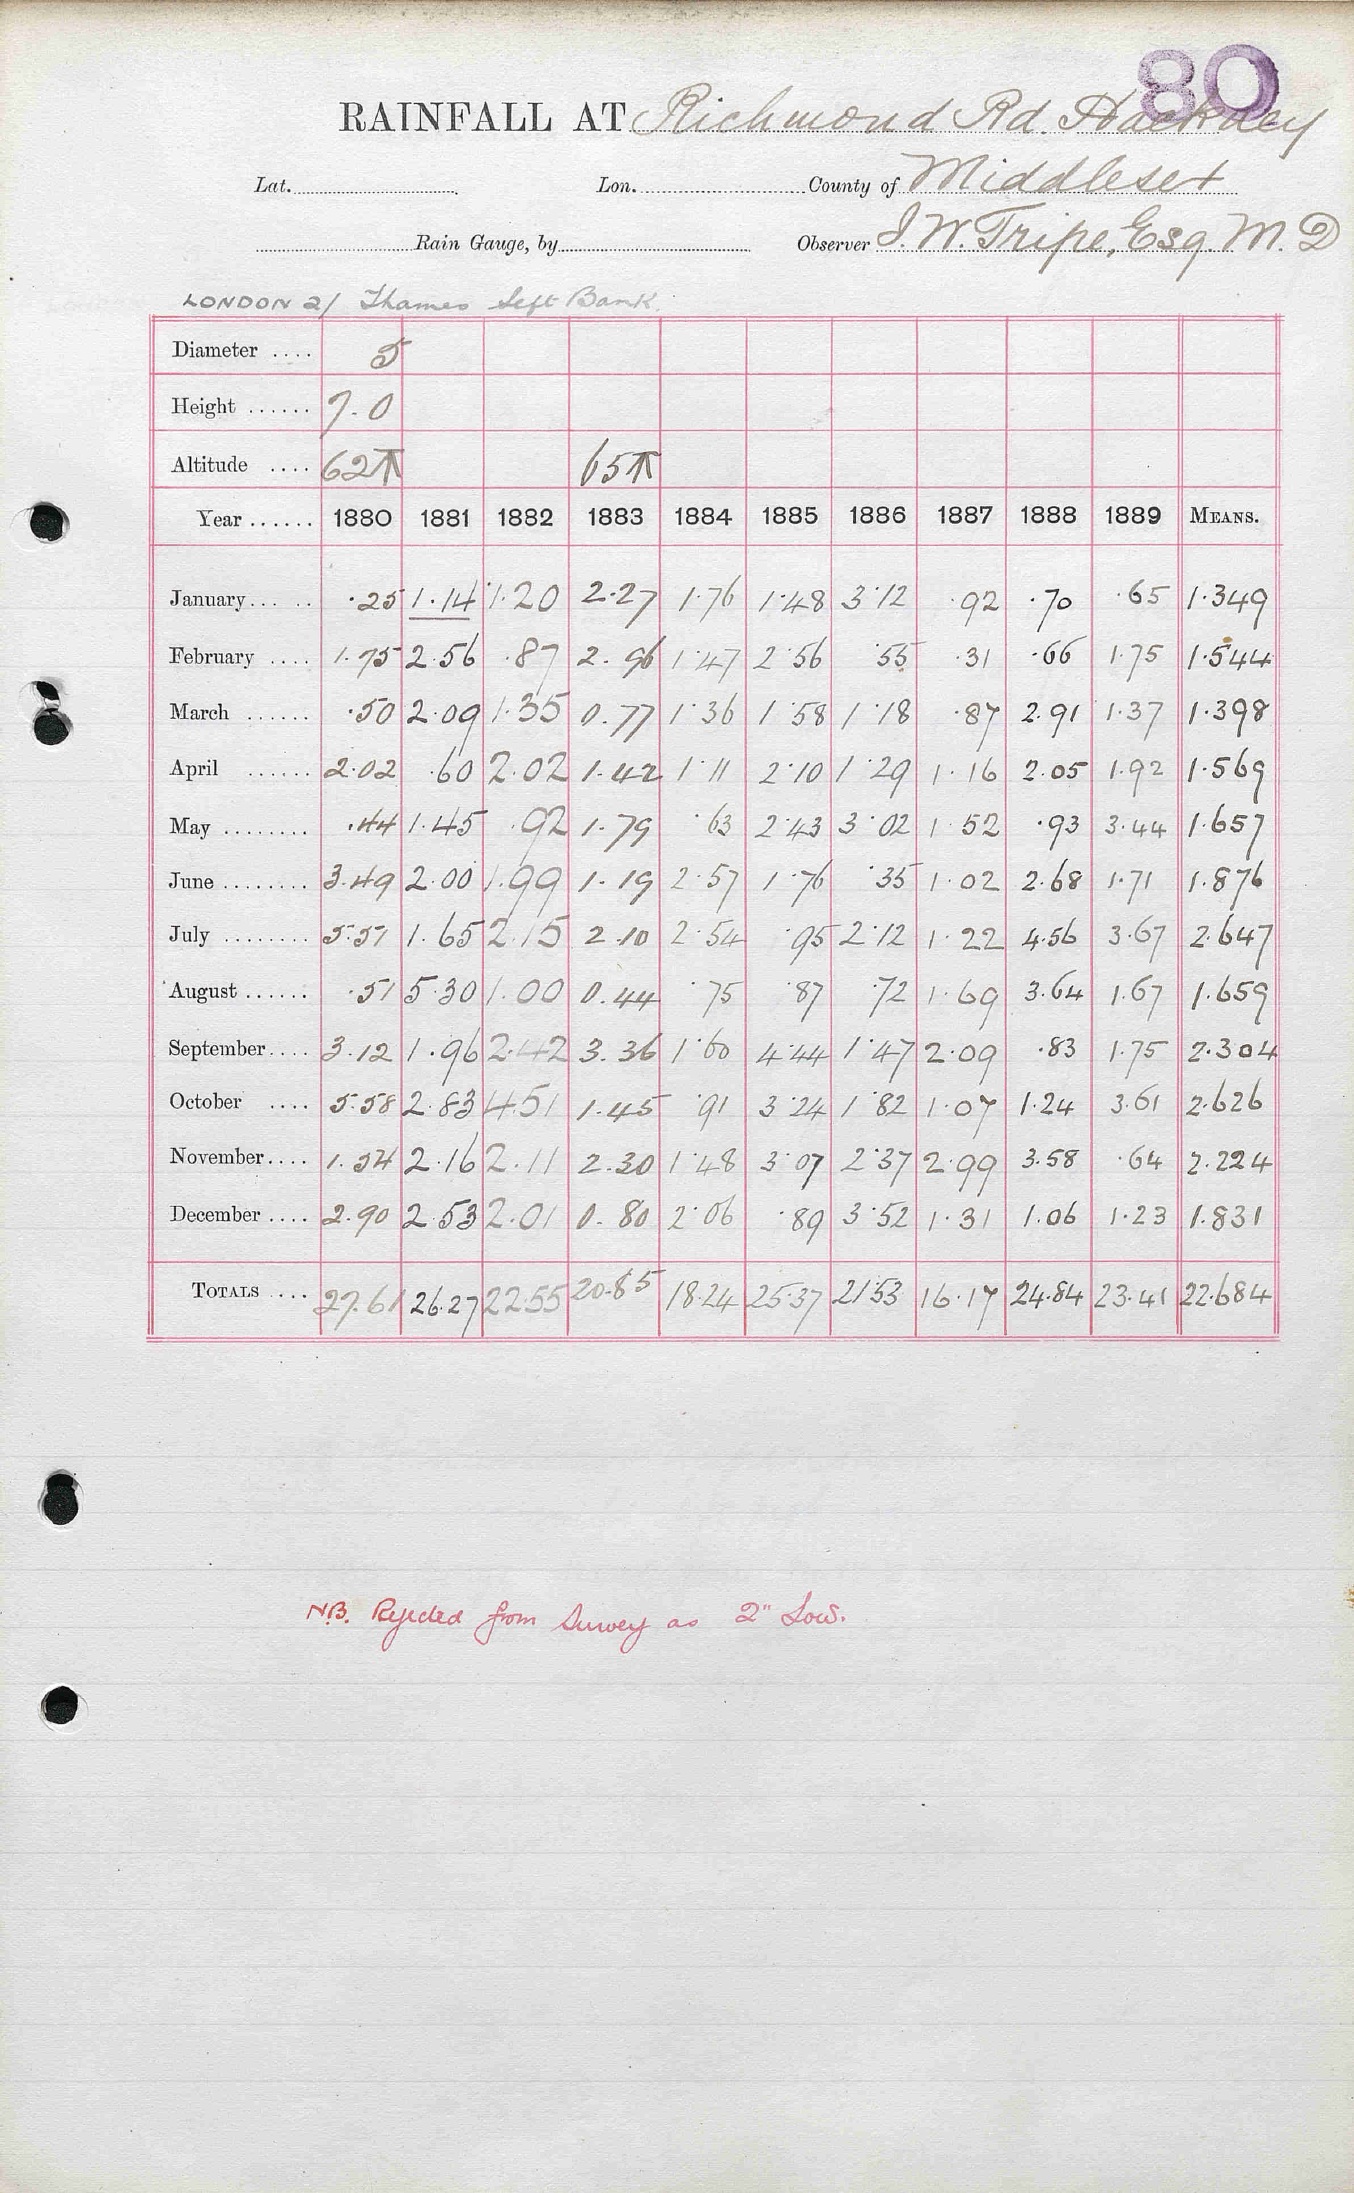 80
RAINFALL AT Richmond Rd. Hackney
Lat. Lon. County of Middlesex
Rain Gauge, by Observer J. W. Tripe, Esq. M. D
LONDON 2/ Thames Left Bank.
Diameter .... 5
Height ...... 7.0
Altitude .... 62 65
Year ...... 1880 1881 1882 1883 1884 1885 1886 1887 1888 1889 MEANS.
January... .. .25 1.14 1.20 2.27 1.76 1.48 3.12 .92 .70 .65 1.349
February .... 1.75 2.56 .87 2.96 1.47 2.56 .55 .31 .66 1.75 1.544
March ...... .50 2.09 1.35 0.77 1.36 1.58 1.18 .87 2.91 1.37 1.398
April ...... 2.02 .60 2.02 1.42 1.11 2.10 1.29 1.16 2.05 1.92 1.569
May ........ .44 1.45 .92 1.79 .63 2.43 3.02 1.52 .93 3.44 1.657
June ........ 3.49 2.00 1.99 1.19 2.57 1.76 .35 1.02 2.68 1.71 1.876
July ........ 5.51 1.65 2.15 2.10 2.54 .95 2.12 1.22 4.56 3.67 2.647
August ...... .51 5.30 1.00 0.44 .75 .87 .72 1.69 3.64 1.67 1.659
September.... 3.12 1.96 2.42 3.36 1.60 4.44 1.47 2.09 .83 1.75 2.304
October .... 5.58 2.83 4.51 1.45 .91 3.24 1.82 1.07 1.24 3.61 2.626
November.... 1.54 2.16 2.11 2.30 1.48 3.07 2.37 2.99 3.58 .64 2.224
December .... 2.90 2.53 2.01 0.80 2.06 .89 3.52 1.31 1.06 1.23 1.831
TOTALS .... 27.61 26.27 22.55 20.85 18.24 25.37 21.53 16.17 24.84 23.41 22.684
NB. Rejected from Survey as 2" Low.